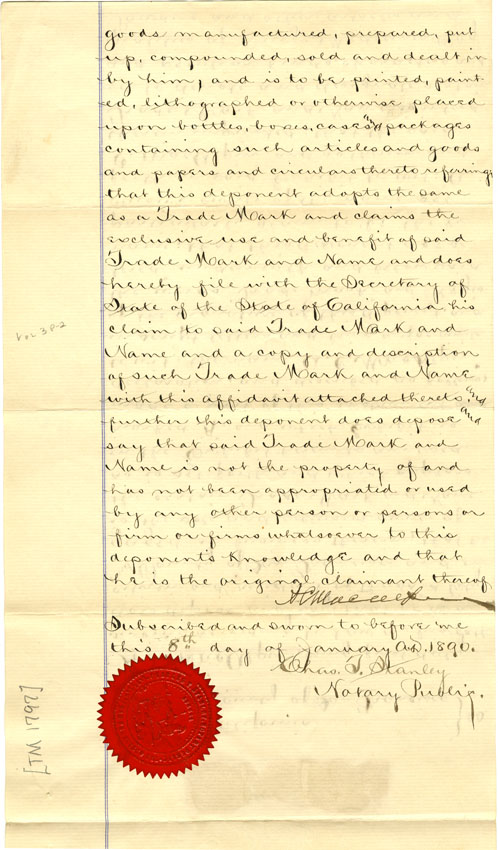 goods manufactured, prepared, put
up, compounded, sold and dealt in
by him, and is to be printed, paint-
ed, lithographed or otherwise placed
upon bottles, boxes, cases and packages
containing such articles and goods
and papers and circulars thereto referring,
that this deponent adopts the same
as a Trade Mark and claims the
exclusive use and benefit of said
Trade Mark and Name and does
hereby file with the Secretary of
State of the State of California his
claim to said Trade Mark and
Name and a copy and description
of such Trade Mark and Name
with this affidavit attached thereto, and
further this deponent does depose and
say that said Trade Mark and
Name is not the property of and
has not been appropriated or used
by any other person or persons or
firm or firms whatsoever to this
deponents knowledge and that
he is the original claimant thereof
Subscribed and sworn to before me
this 8th day of January A.D. 1890.
Chas. T. Stanley
Notary Public.
Vol 3 P-2
[TM 1797]